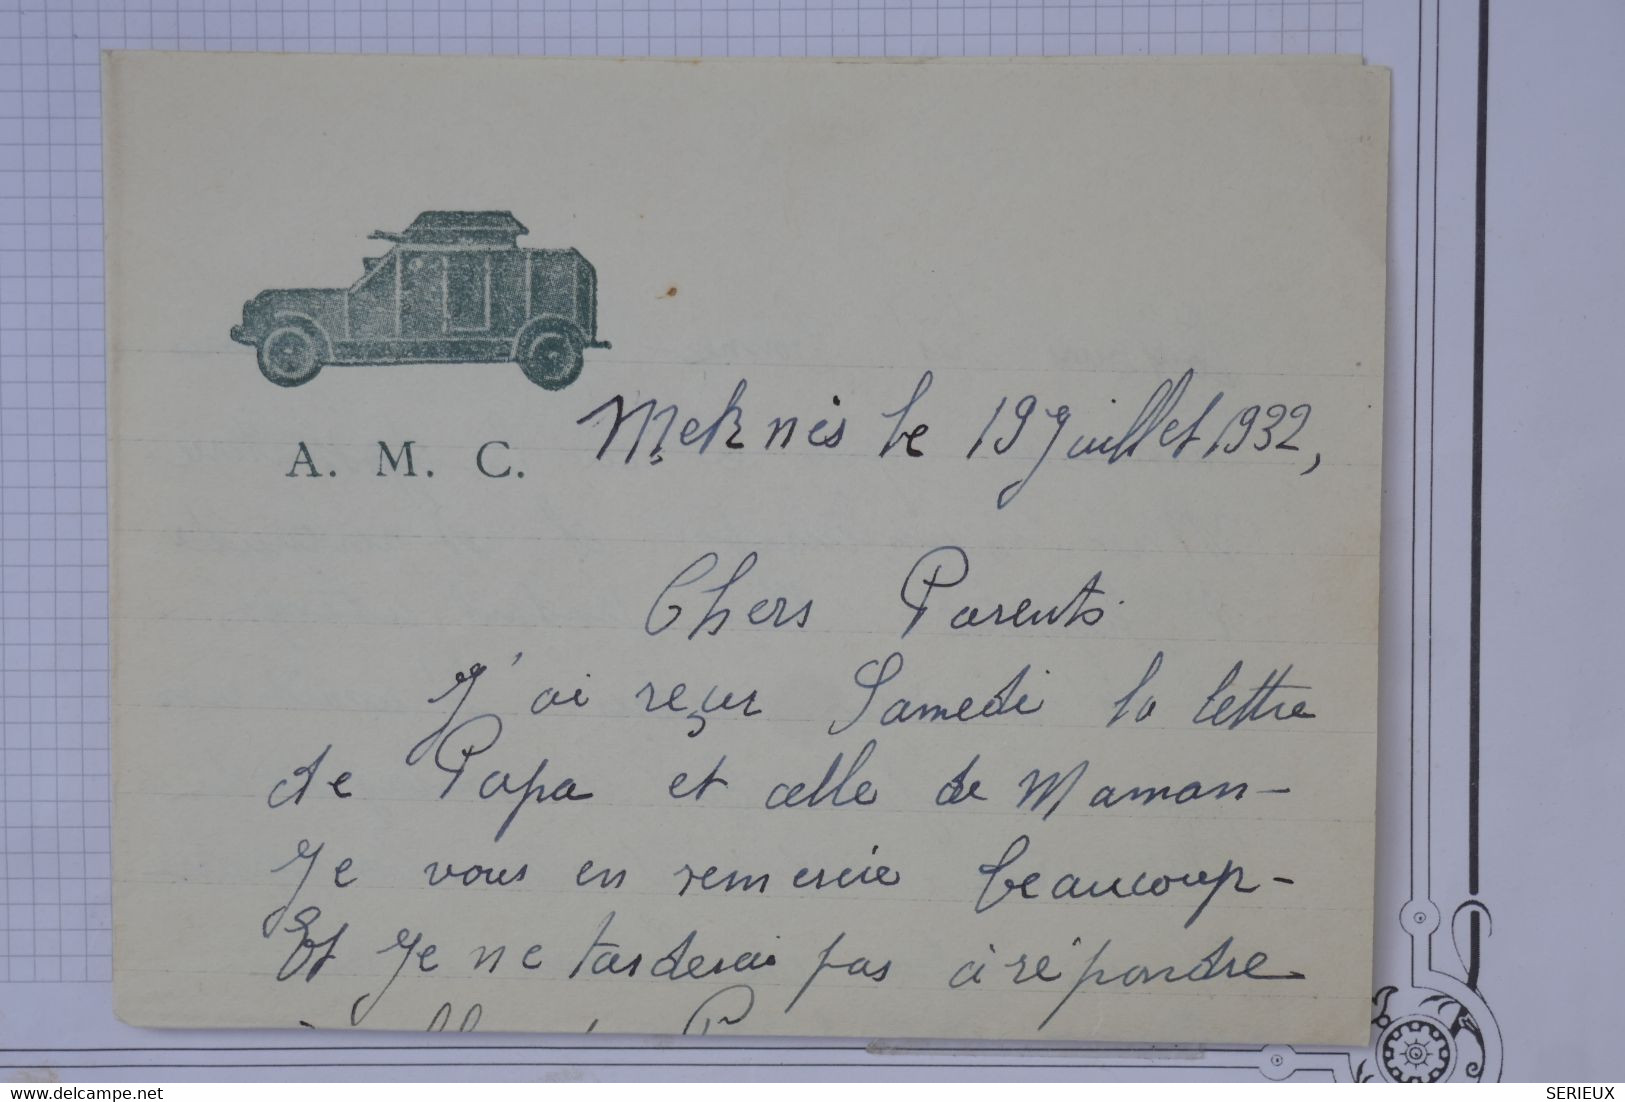 A. M. C.
Meknès le 19 Juillet 1932,
Chers Parents
J'ai reçus Samedi la lettre
de Papa et celle de Maman -
Je vous en remercie beaucoup -
Et Je ne tarderai pas à répondre
à celle de P
SERIEUX